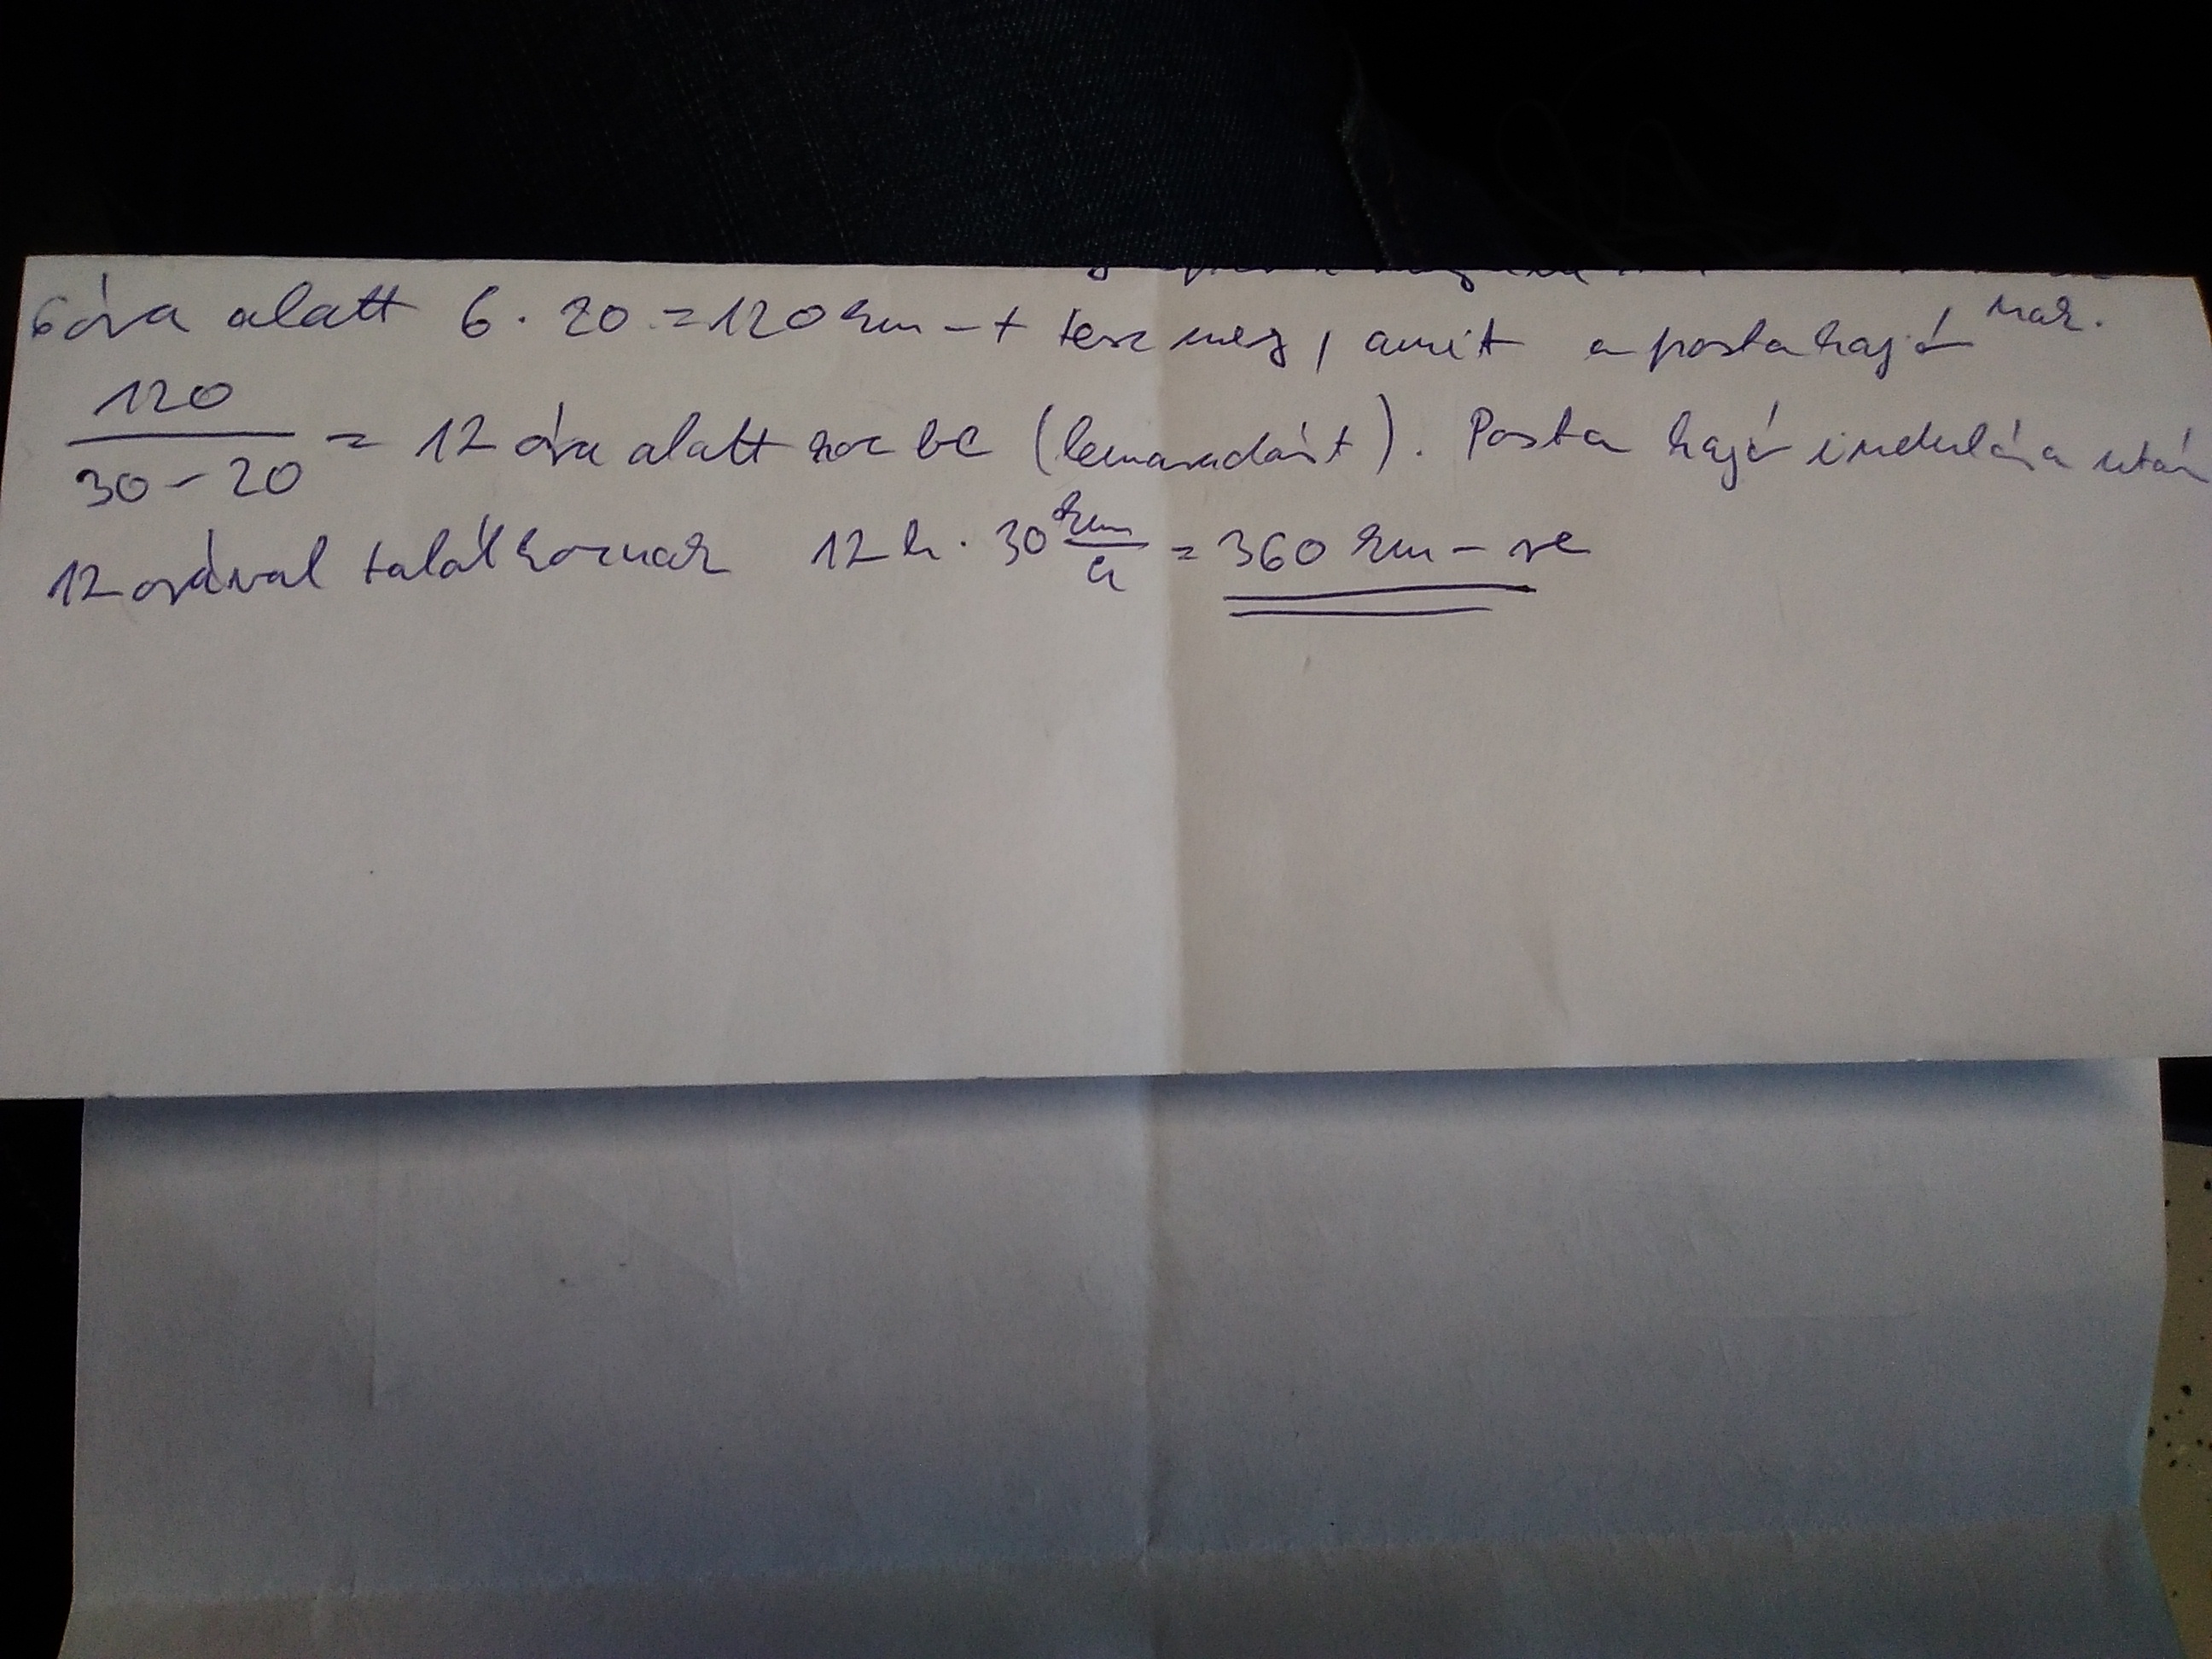 6 óra alatt 6 · 20 = 120 km-t tesz meg, amit a postahajó már.
120
30 - 20 = 12 óra alatt hoz be (lemaradást). Posta hajó indulása után
12 órával találkoznak 12 h · 30 km/h = 360 km-re